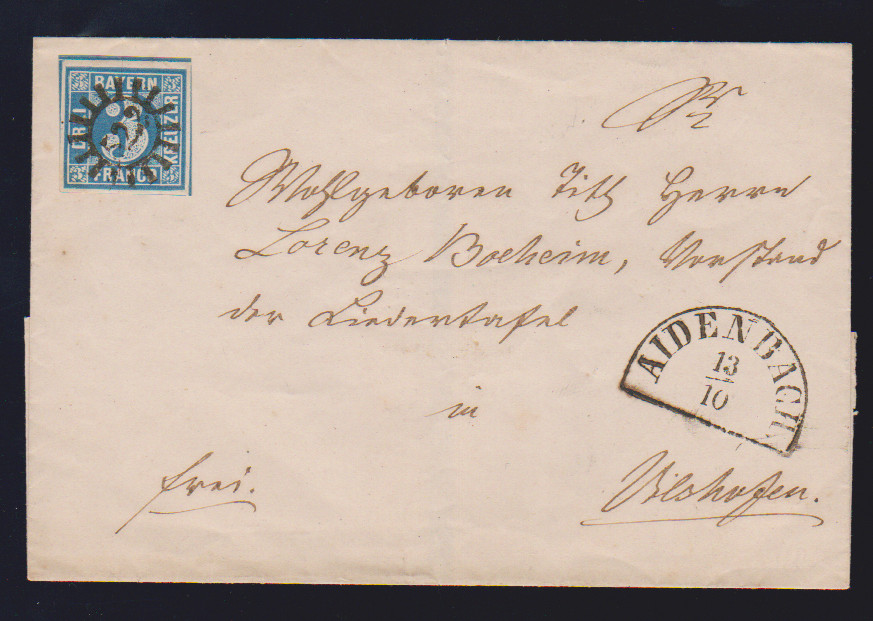 BAYERN
DREI
KREUZER
FRANCO
3
Wohlgeboren Titl Herrn
Lorenz Boeheim, Vorstand
der Liedertafel
AIDENBACH
13
10
in
frei.
Vilshofen.